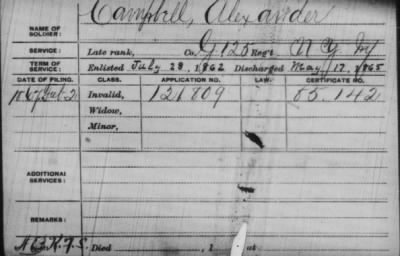 Campbell, Alexander
NAME OF SOLDIER:
SERVICE: Late rank, Co. G, 125 Reg't N.Y. Inf
TERM OF SERVICE: Enlisted July 28, 1862 Discharged May 17, 1865
DATE OF FILING. CLASS. APPLICATION NO. LAW. CERTIFICATE NO.
1867 Invalid, 121809 85.142
Widow,
Minor,
ADDITIONAL SERVICES:
REMARKS:
Died , 1 , at